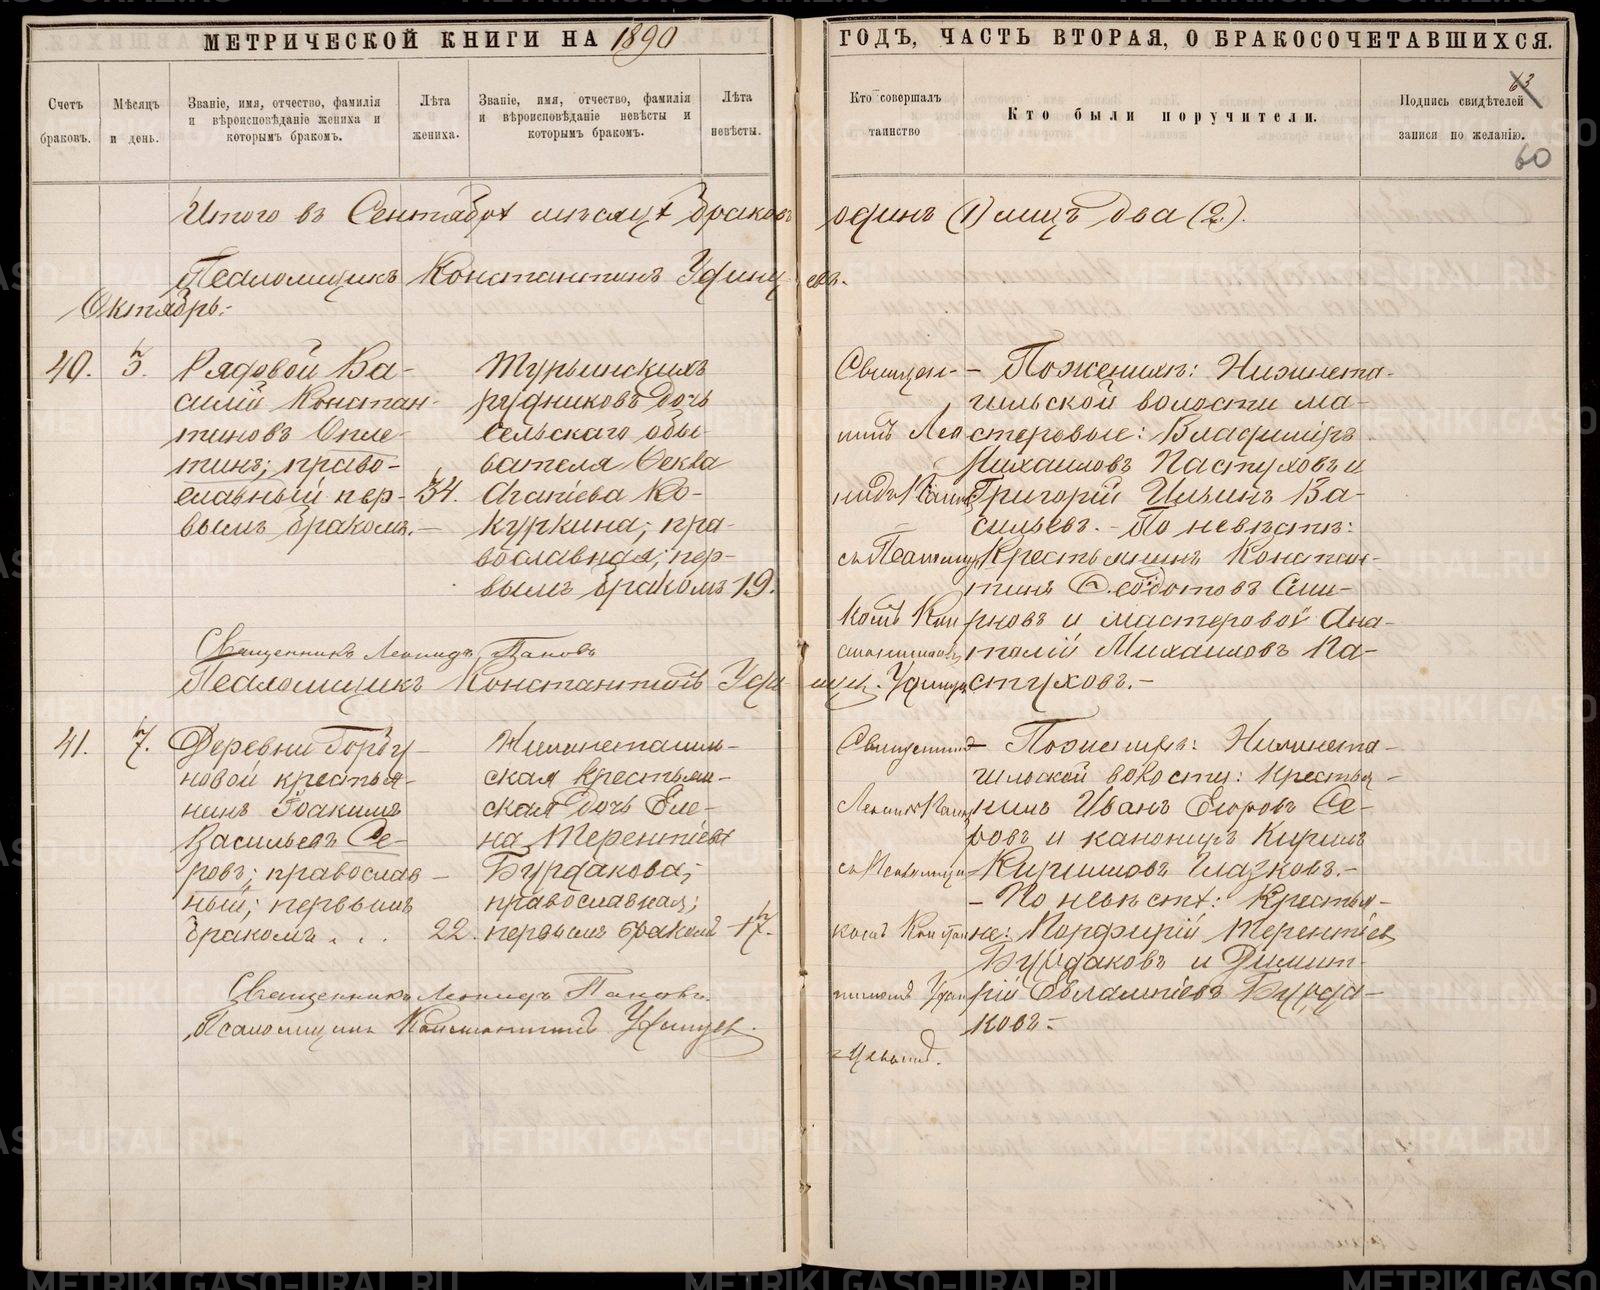 МЕТРИЧЕСКОЙ КНИГИ НА 1890
ГОДЪ, ЧАСТЬ ВТОРАЯ, О БРАКОСОЧЕТАВШИХСЯ.
63
60
Счетъ браковъ.
Мѣсяцъ и день.
Званіе, имя, отчество, фамилія
и вѣроисповѣданіе жениха и
которымъ бракомъ.
Лѣта жениха.
Званіе, имя, отчество, фамилія
и вѣроисповѣданіе невѣсты и
которымъ бракомъ.
Лѣта невѣсты.
Кто совершалъ таинство
Кто были поручители.
Подпись свидѣтелей
записи по желанію.
Итого въ Сентябрѣ мѣсяцѣ браковъ одинъ (1) лицъ два (2).
Псаломщикъ Константинъ Удинцевъ.
Октябрь:
40.
3.
Рядовой Ва-
силій Констан-
тиновъ Опле-
тинъ; право-
славный пер-
вымъ бракомъ.-
34.
Турьинскихъ
рудниковъ дочь
сельскаго обы-
вателя Ѳекла
Агапіева Ко-
куркина; пра-
вославная; пер-
вымъ бракомъ
19.
Священ-
никъ Лео
нидъ Пановъ
съ Псаломщи
комъ Кон
стантиномъ
Удинцев
- По женихѣ: Нижнета-
гильской волости ма-
стеровые: Владиміръ
Михаиловъ Пастуховъ и
Григорій Ильинъ Ва-
сильевъ. - По невѣстѣ:
Крестьянинъ Констан-
тинъ Ѳедотовъ Сми-
рновъ и мастеровой Ана-
толій Михаиловъ Па-
стуховъ.-
Священникъ Леонидъ Пановъ
Псаломщикъ Константинъ Удинцев.
41.
7.
Деревни Горбу-
новой крестья-
нинъ Іоакимъ
Васильевъ Се-
ровъ; православ-
ный; первымъ
бракомъ . . .
22.
Нижнетагиль-
ская крестьян-
ская дочь Еле-
на Терентіева
Бурдакова;
православная;
первымъ бракомъ
17.
Священник
Леонидъ Панов
съ Псаломщи
комъ Констан
тиномъ Удин
цевымъ.
- По женихѣ: Нижнета-
гильской волости: Крестья-
нинъ Иванъ Егоровъ Се-
ровъ и канониръ Кирилъ
Кириловъ Глазковъ.-
- По невѣстѣ: Крестья-
не: Порфирій Терентіев
Бурдаковъ и Димит-
рій Евлампіевъ Бурда-
ковъ.-
Священникъ Леонидъ Пановъ.
Псаломщикъ Константинъ Удинцев.
METRIKI.GASO-URAL.RU